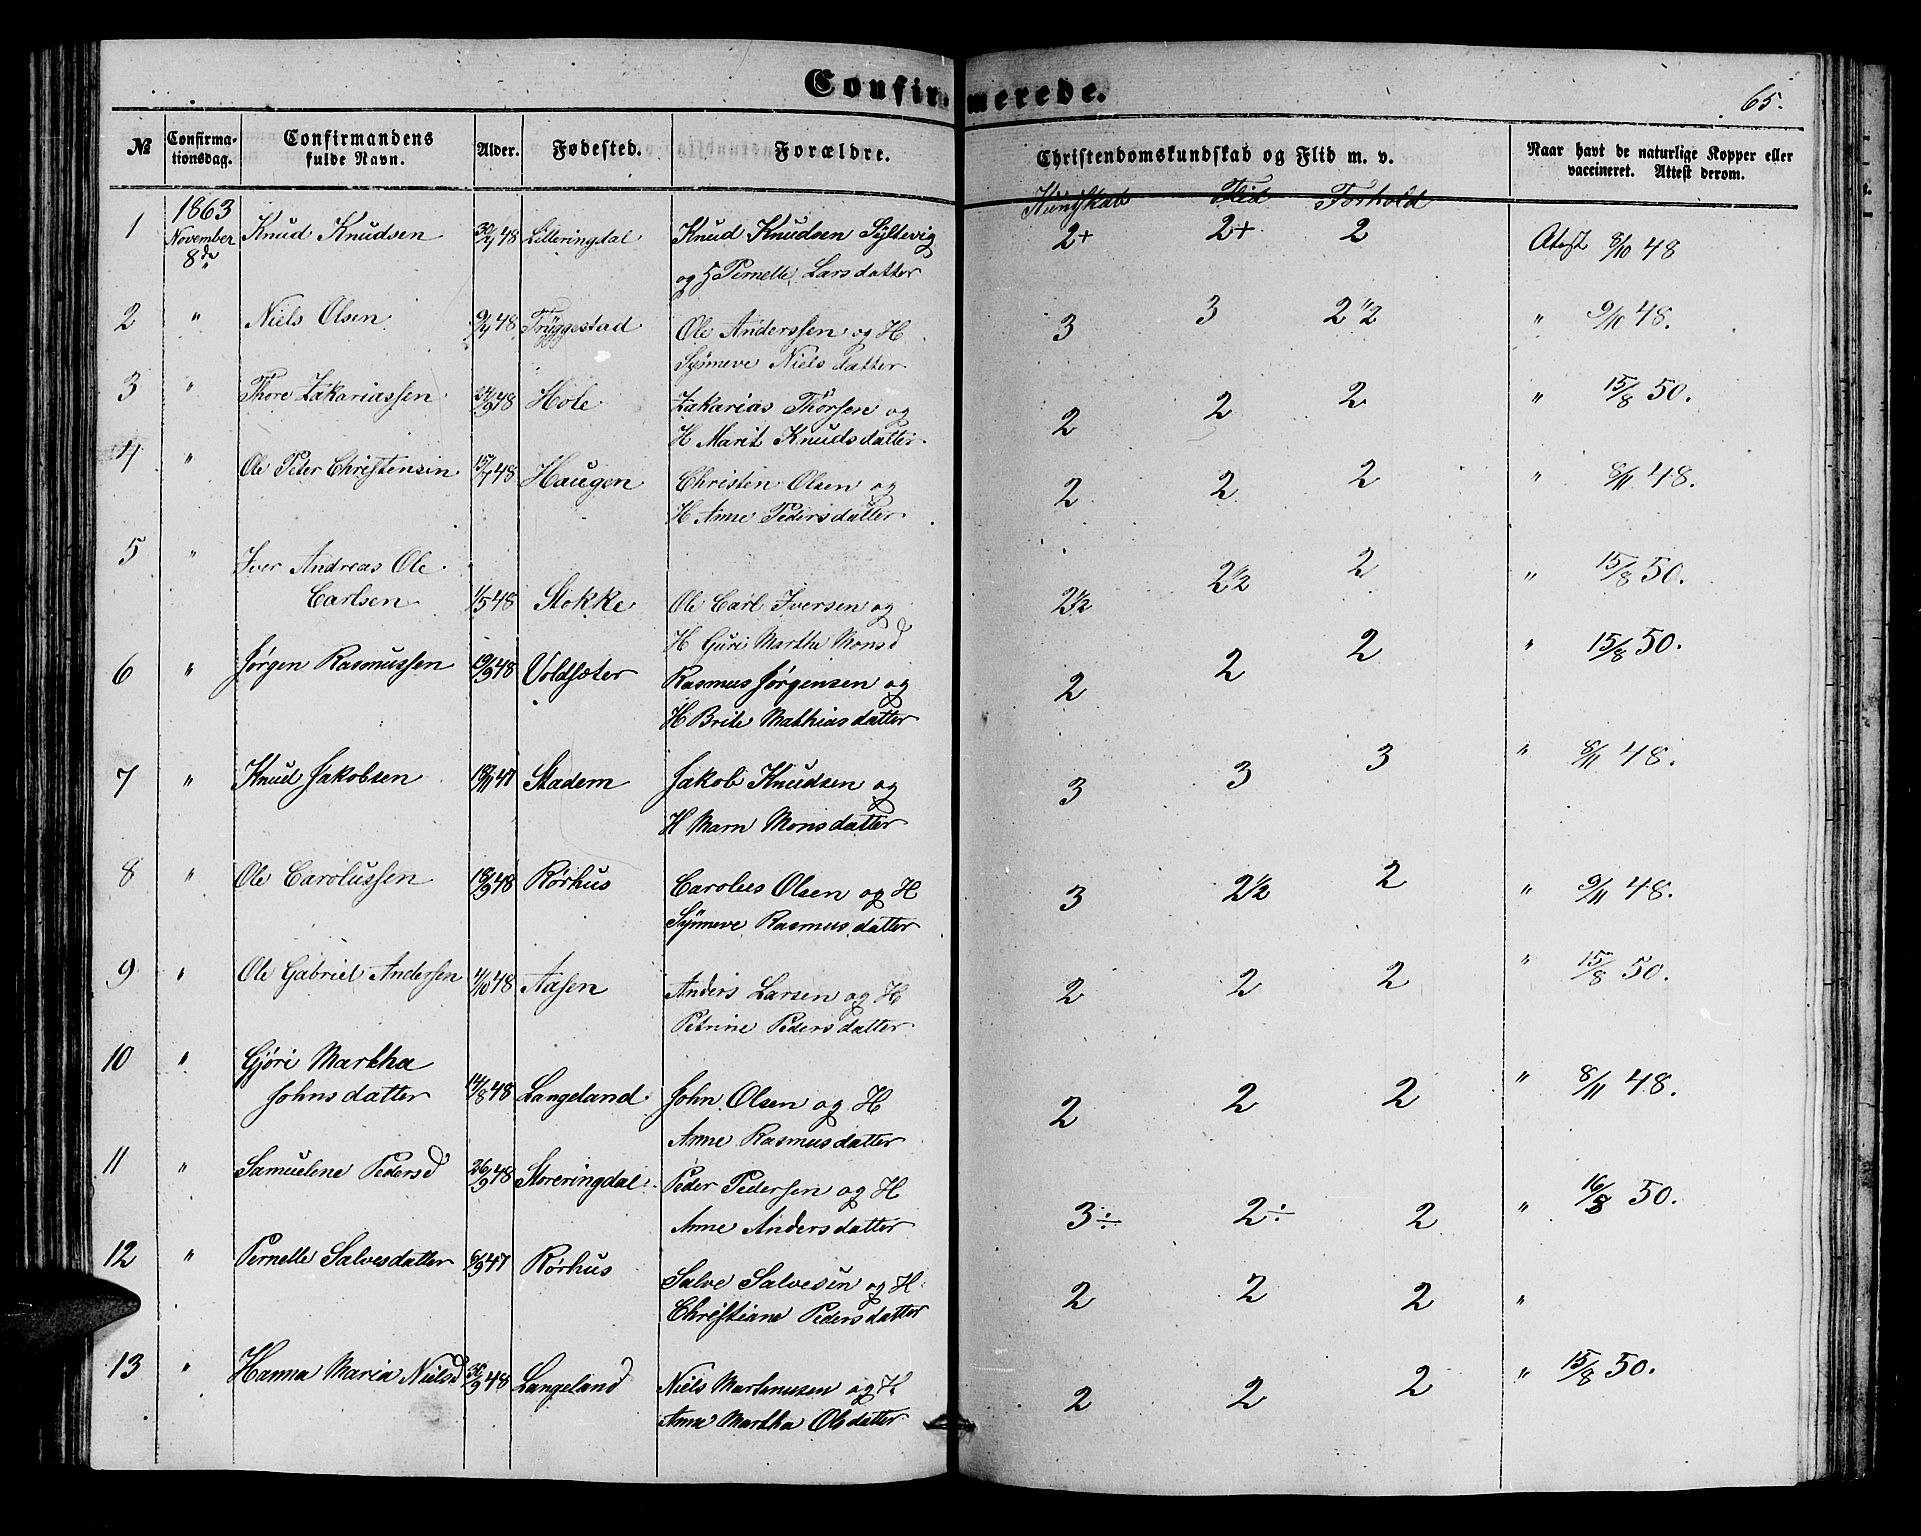 Confirmerede.
65.
№ Confirma-tionsdag. Confirmandens fulde Navn. Alder. Fødested. Forældre. Christendomskundskab og Flid m. v. Naar havt de naturlige Kopper eller vaccineret. Attest derom.
Kundskab Flid Forhold
1 1863 November 8de Knud Knudsen 48 Lilleringdal Knud Knudsen Syltevig 2+ 2+ 2 Atest 8/10 48
og H Pernelle Larsdatter
2 " Niels Olsen 48 Tryggestad Ole Anderssen og H 3 3 2 1/2 " 9/10 48.
Synneve Nielsdatter
3 " Thore Zakariassen 48 Hole Zakarias Thorsen og 2 2 2 " 15/8 50.
H Marit Knudsdatter
4 " Ole Peter Christensen 48 Haugen Christen Olsen og 2 2 2 " 8/11 48.
H Anne Pedersdatter
5 " Iver Andreas Ole
Carlsen 1/5 48 Stokke Ole Carl Iversen og 2 1/2 2 1/2 2 " 15/8 50.
H Guri Marthe Monsd
6 " Jørgen Rasmussen 19/9 48 Voldsæter Rasmus Jørgensen og 2 2 2 " 15/8 50.
H Brite Mathiasdatter
7 " Knud Jakobsen 18/11 47 Stadem Jakob Knudsen og 3 3 3 " 8/11 48.
H Marn Monsdatter
8 " Ole Carolussen 18/9 48 Rørhus Carolus Olsen og H 3 2 1/2 2 " 9/11 48.
Synneve Rasmusdatter
9 " Ole Gabriel Andersen 4/10 48 Aasen Anders Larsen og H 2 2 2 " 15/8 50.
Petrine Pedersdatter
10 " Gjøri Martha
Johnsdatter 14/8 48 Langeland John Olsen og H 2 2 2 " 8/11 48.
Anne Rasmusdatter
11 " Samuelene Pedersd 26/9 48 Storeringdal Peder Pedersen og H 3÷ 2÷ 2 " 16/8 50.
Anne Andersdatter
12 " Pernelle Salvesdatter 6/9 47 Rørhus Salve Salvesen og H 2 2 2 "
Christiane Pedersdatter
13 " Hanna Maria Nielsd 30/9 48 Langeland Niels Martinusen og H 2 2 2 " 15/8 50.
Anne Martha Olsdatter